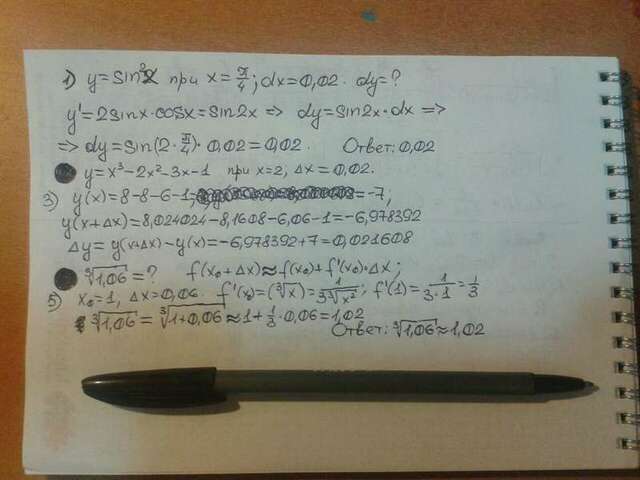 1) y=sin²x при x=π/4; dx=0,02. dy=?
y'=2sinx·cosx=sin2x => dy=sin2x·dx =>
=> dy=sin(2·π/4)·0,02=0,02. Ответ: 0,02
y=x³-2x²-3x-1 при x=2, Δx=0,02.
3) y(x)=8-8-6-1=-7,
y(x+Δx)=8,024024-8,1608-6,06-1=-6,978392
Δy=y(x+Δx)-y(x)=-6,978392+7=0,021608
∛1,06=? f(x₀+Δx)≈f(x₀)+f'(x₀)·Δx;
5) x₀=1, Δx=0,06. f'(x₀)=(∛x)'=1/(3∛x²); f'(1)=1/(3·1)=1/3
∛1,06=∛1+0,06≈1+1/3·0,06=1,02
Ответ: ∛1,06≈1,02